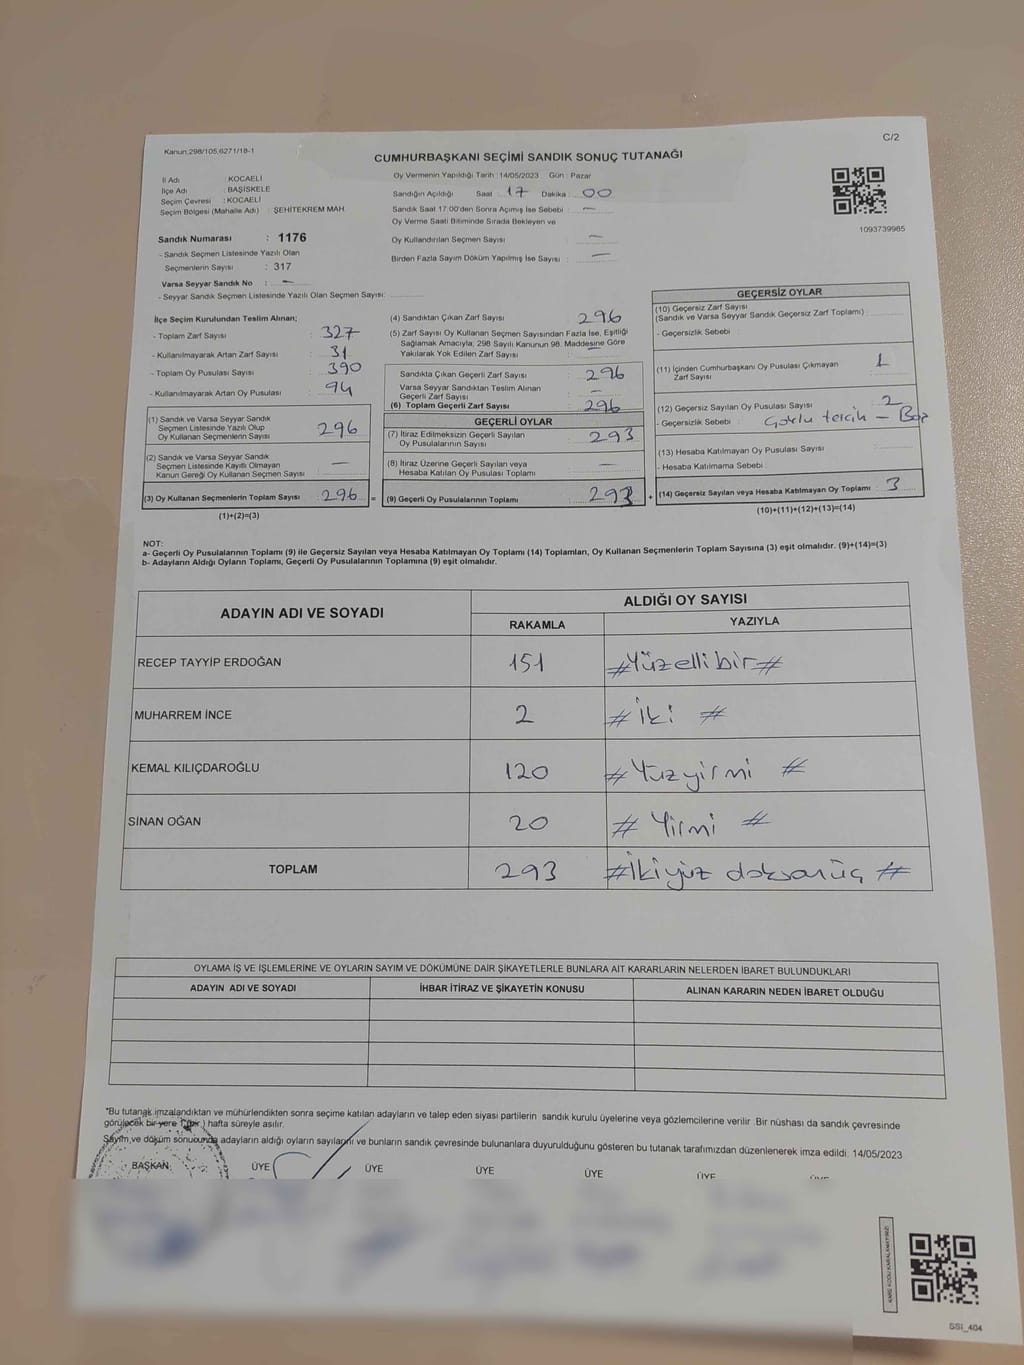 C/2
Kanun:298/105,6271/18-1
CUMHURBAŞKANI SEÇİMİ SANDIK SONUÇ TUTANAĞI
İl Adı : KOCAELİ
İlçe Adı : BAŞİSKELE
Seçim Çevresi : KOCAELİ
Seçim Bölgesi (Mahalle Adı) : ŞEHİTEKREM MAH.
Sandık Numarası : 1176
- Sandık Seçmen Listesinde Yazılı Olan
Seçmenlerin Sayısı : 317
Varsa Seyyar Sandık No : —
- Seyyar Sandık Seçmen Listesinde Yazılı Olan Seçmen Sayısı:
Oy Vermenin Yapıldığı Tarih : 14/05/2023 Gün : Pazar
Sandığın Açıldığı Saat : 17 Dakika : 00
Sandık Saat 17:00'den Sonra Açımış İse Sebebi : —
Oy Verme Saati Bitiminde Sırada Bekleyen ve
Oy Kullandırılan Seçmen Sayısı : —
Birden Fazla Sayım Döküm Yapılmış İse Sayısı : —
1093739985
İlçe Seçim Kurulundan Teslim Alınan;
- Toplam Zarf Sayısı : 327
- Kullanılmayarak Artan Zarf Sayısı : 31
- Toplam Oy Pusulası Sayısı : 390
- Kullanılmayarak Artan Oy Pusulası : 94
(1) Sandık ve Varsa Seyyar Sandık
Seçmen Listesinde Yazılı Olup
Oy Kullanan Seçmenlerin Sayısı : 296
(2) Sandık ve Varsa Seyyar Sandık
Seçmen Listesinde Kayıtlı Olmayan
Kanun Gereği Oy Kullanan Seçmen Sayısı : —
(3) Oy Kullanan Seçmenlerin Toplam Sayısı : 296 =
(1)+(2)=(3)
(4) Sandıktan Çıkan Zarf Sayısı : 296
(5) Zarf Sayısı Oy Kullanan Seçmen Sayısından Fazla İse, Eşitliği
Sağlamak Amacıyla, 298 Sayılı Kanunun 98. Maddesine Göre
Yakılarak Yok Edilen Zarf Sayısı : —
Sandıkta Çıkan Geçerli Zarf Sayısı : 296
Varsa Seyyar Sandıktan Teslim Alınan
Geçerli Zarf Sayısı : —
(6) Toplam Geçerli Zarf Sayısı : 296
GEÇERLİ OYLAR
(7) İtiraz Edilmeksizin Geçerli Sayılan
Oy Pusulalarının Sayısı : 293
(8) İtiraz Üzerine Geçerli Sayılan veya
Hesaba Katılan Oy Pusulası Toplamı : —
(9) Geçerli Oy Pusulalarının Toplamı : 293 +
GEÇERSİZ OYLAR
(10) Geçersiz Zarf Sayısı
(Sandık ve Varsa Seyyar Sandık Geçersiz Zarf Toplamı) :
- Geçersizlik Sebebi :
(11) İçinden Cumhurbaşkanı Oy Pusulası Çıkmayan
Zarf Sayısı : 1
(12) Geçersiz Sayılan Oy Pusulası Sayısı : 2
- Geçersizlik Sebebi : Çoklu tercih — Boş
(13) Hesaba Katılmayan Oy Pusulası Sayısı :
- Hesaba Katılmama Sebebi :
(14) Geçersiz Sayılan veya Hesaba Katılmayan Oy Toplamı : 3
(10)+(11)+(12)+(13)=(14)
NOT:
a- Geçerli Oy Pusulalarının Toplamı (9) ile Geçersiz Sayılan veya Hesaba Katılmayan Oy Toplamı (14) Toplamları, Oy Kullanan Seçmenlerin Toplam Sayısına (3) eşit olmalıdır. (9)+(14)=(3)
b- Adayların Aldığı Oyların Toplamı, Geçerli Oy Pusulalarının Toplamına (9) eşit olmalıdır.
ADAYIN ADI VE SOYADI ALDIĞI OY SAYISI
RAKAMLA YAZIYLA
RECEP TAYYİP ERDOĞAN 151 #Yüzellibir#
MUHARREM İNCE 2 # İki #
KEMAL KILIÇDAROĞLU 120 #Yüzyirmi #
SİNAN OĞAN 20 # Yirmi #
TOPLAM 293 #İkiyüz doksanüç #
OYLAMA İŞ VE İŞLEMLERİNE VE OYLARIN SAYIM VE DÖKÜMÜNE DAİR ŞİKAYETLERLE BUNLARA AİT KARARLARIN NELERDEN İBARET BULUNDUKLARI
ADAYIN ADI VE SOYADI İHBAR İTİRAZ VE ŞİKAYETİN KONUSU ALINAN KARARIN NEDEN İBARET OLDUĞU
"Bu tutanak imzalandıktan ve mühürlendikten sonra seçime katılan adayların ve talep eden siyasi partilerin sandık kurulu üyelerine veya gözlemcilerine verilir. Bir nüshası da sandık çevresinde
görülecek bir yere 1(bir) hafta süreyle asılır.
Sayım ve döküm sonucunda adayların aldığı oyların sayılarını ve bunların sandık çevresinde bulunanlara duyurulduğunu gösteren bu tutanak tarafımızdan düzenlenerek imza edildi. 14/05/2023
BAŞKAN ÜYE ÜYE ÜYE ÜYE ÜYE
KARE KODU KARALAMAYINIZ!
SSI_404